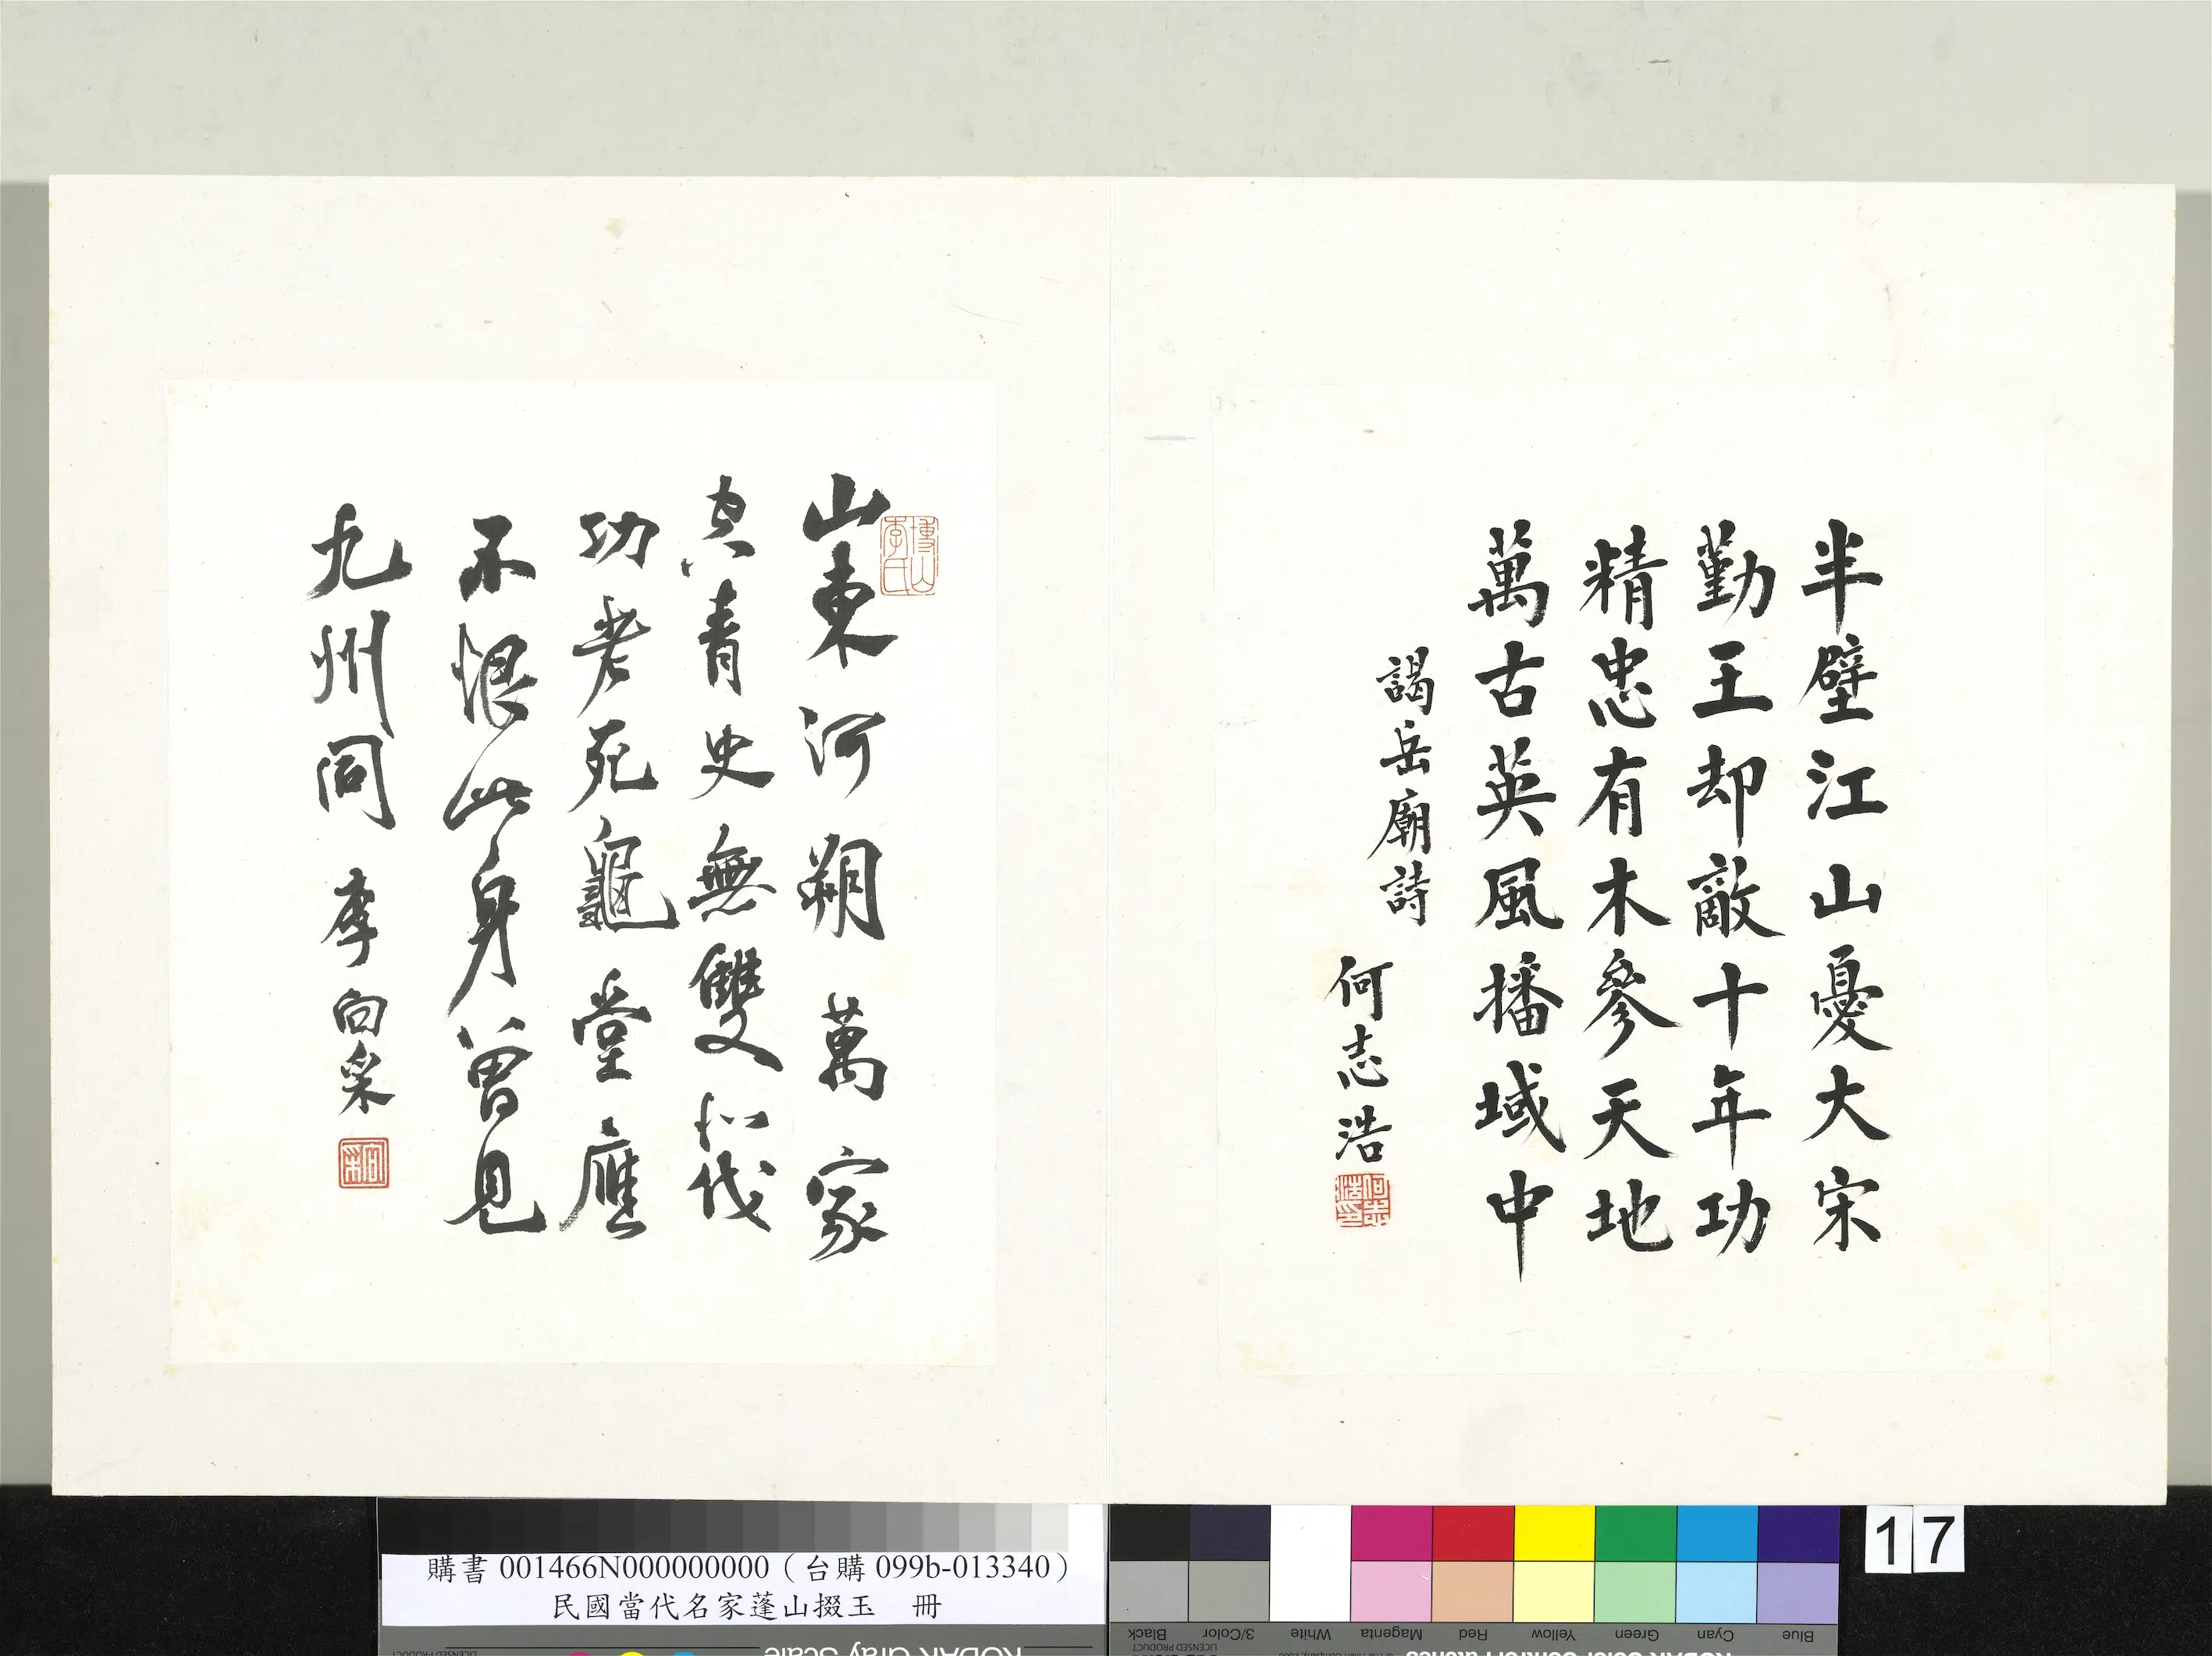 半壁江山憂大宋
勤王却敵十年功
精忠有木參天地
萬古英風播域中
謁岳廟詩
何志浩
何志浩印
博山李氏
山東河朔萬家
青史無雙北伐
功老死龜堂應
不恨此身曾見
九州同 李向采
向采
購書 001466N000000000（台購 099b-013340）
民國當代名家蓬山掇玉 冊
17
Blue Cyan Green Yellow Red Magenta White 3/Color Black
KODAK Gray Scale
LICENSED PRODUCT